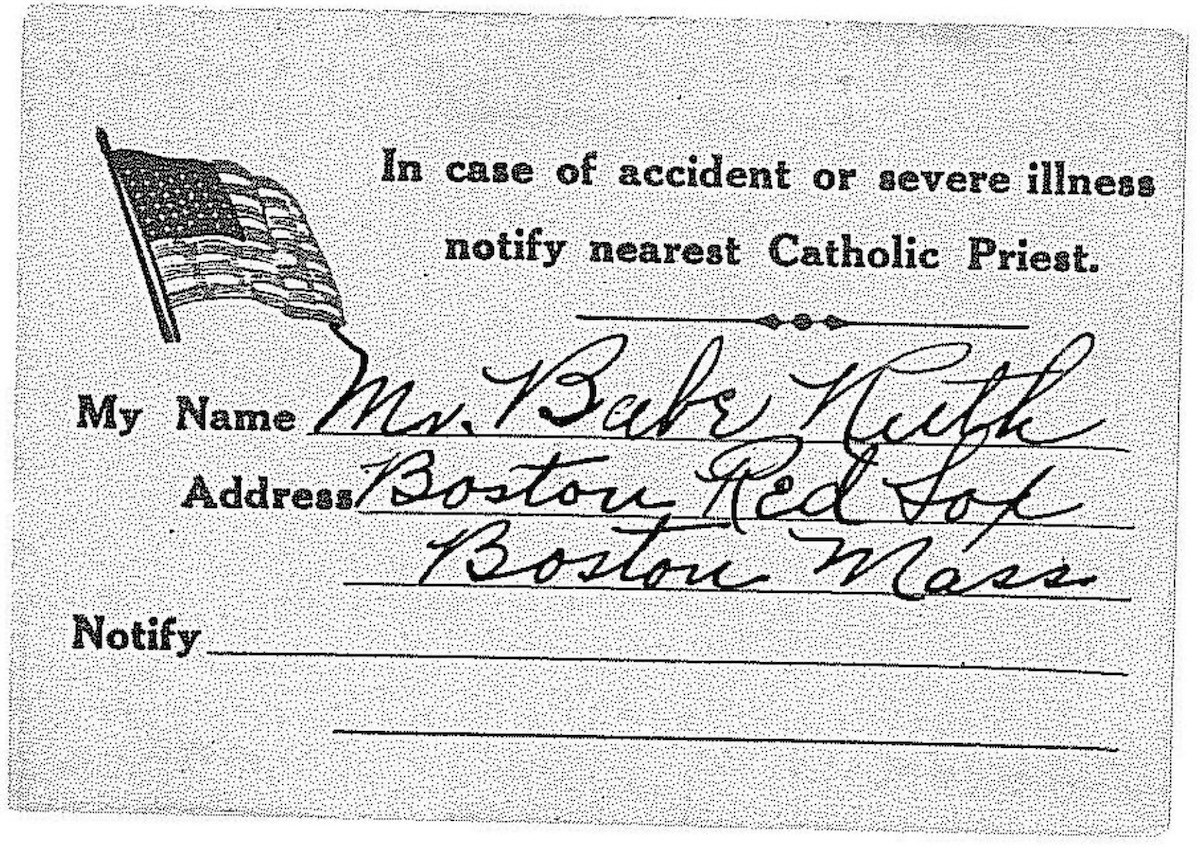 In case of accident or severe illness
notify nearest Catholic Priest.
My Name Mr. Babe Ruth
Address Boston Red Sox
Boston Mass
Notify